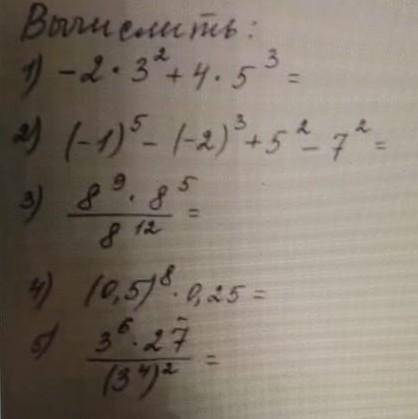 Вычислить:
1) -2 · 3² + 4 · 5³ =
2) (-1)⁵ - (-2)³ + 5² - 7² =
3) 8⁹ · 8⁵ / 8¹² =
4) (0,5)⁸ · 0,25 =
5) 3⁶ · 27 / (3⁴)² =